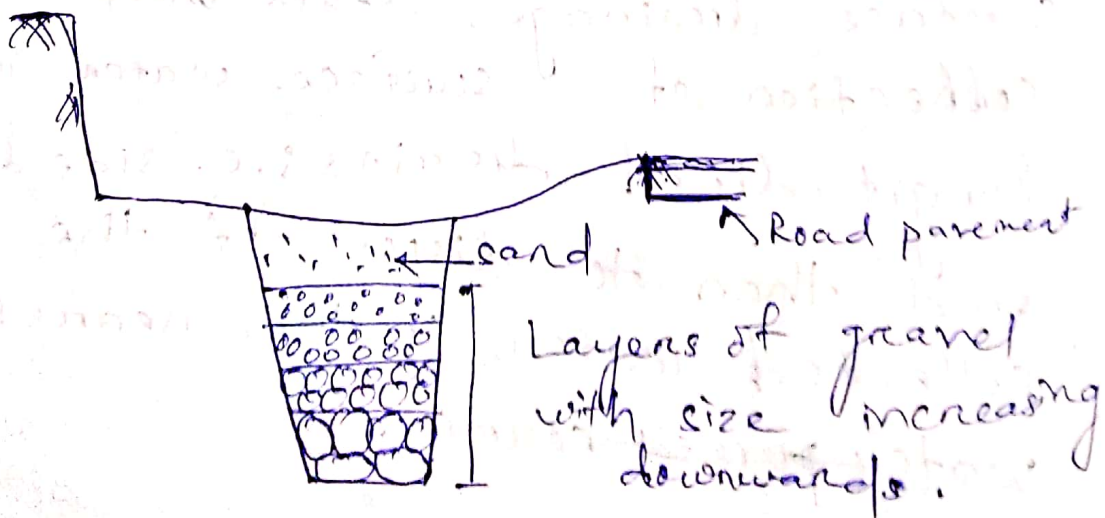 sand
Road pavement
Layers of gravel
with size increasing
downwards.